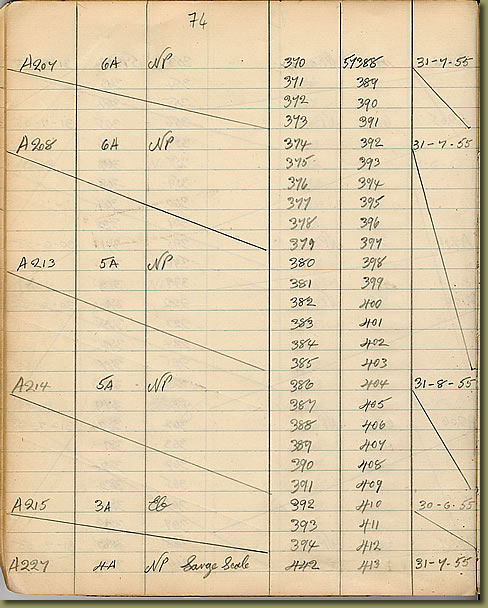 74
A207 6A NP 370 57388 31-7-55
371 389
372 390
373 391
A208 6A NP 374 392 31-7-55
375 393
376 394
377 395
378 396
379 397
A213 5A NP 380 398
381 399
382 400
383 401
384 402
385 403
A214 5A NP 386 404 31-8-55
387 405
388 406
389 407
390 408
391 409
A215 3A 392 410 30-6-55
393 411
394 412
A227 4A NP Large Scale 442 413 31-7-55